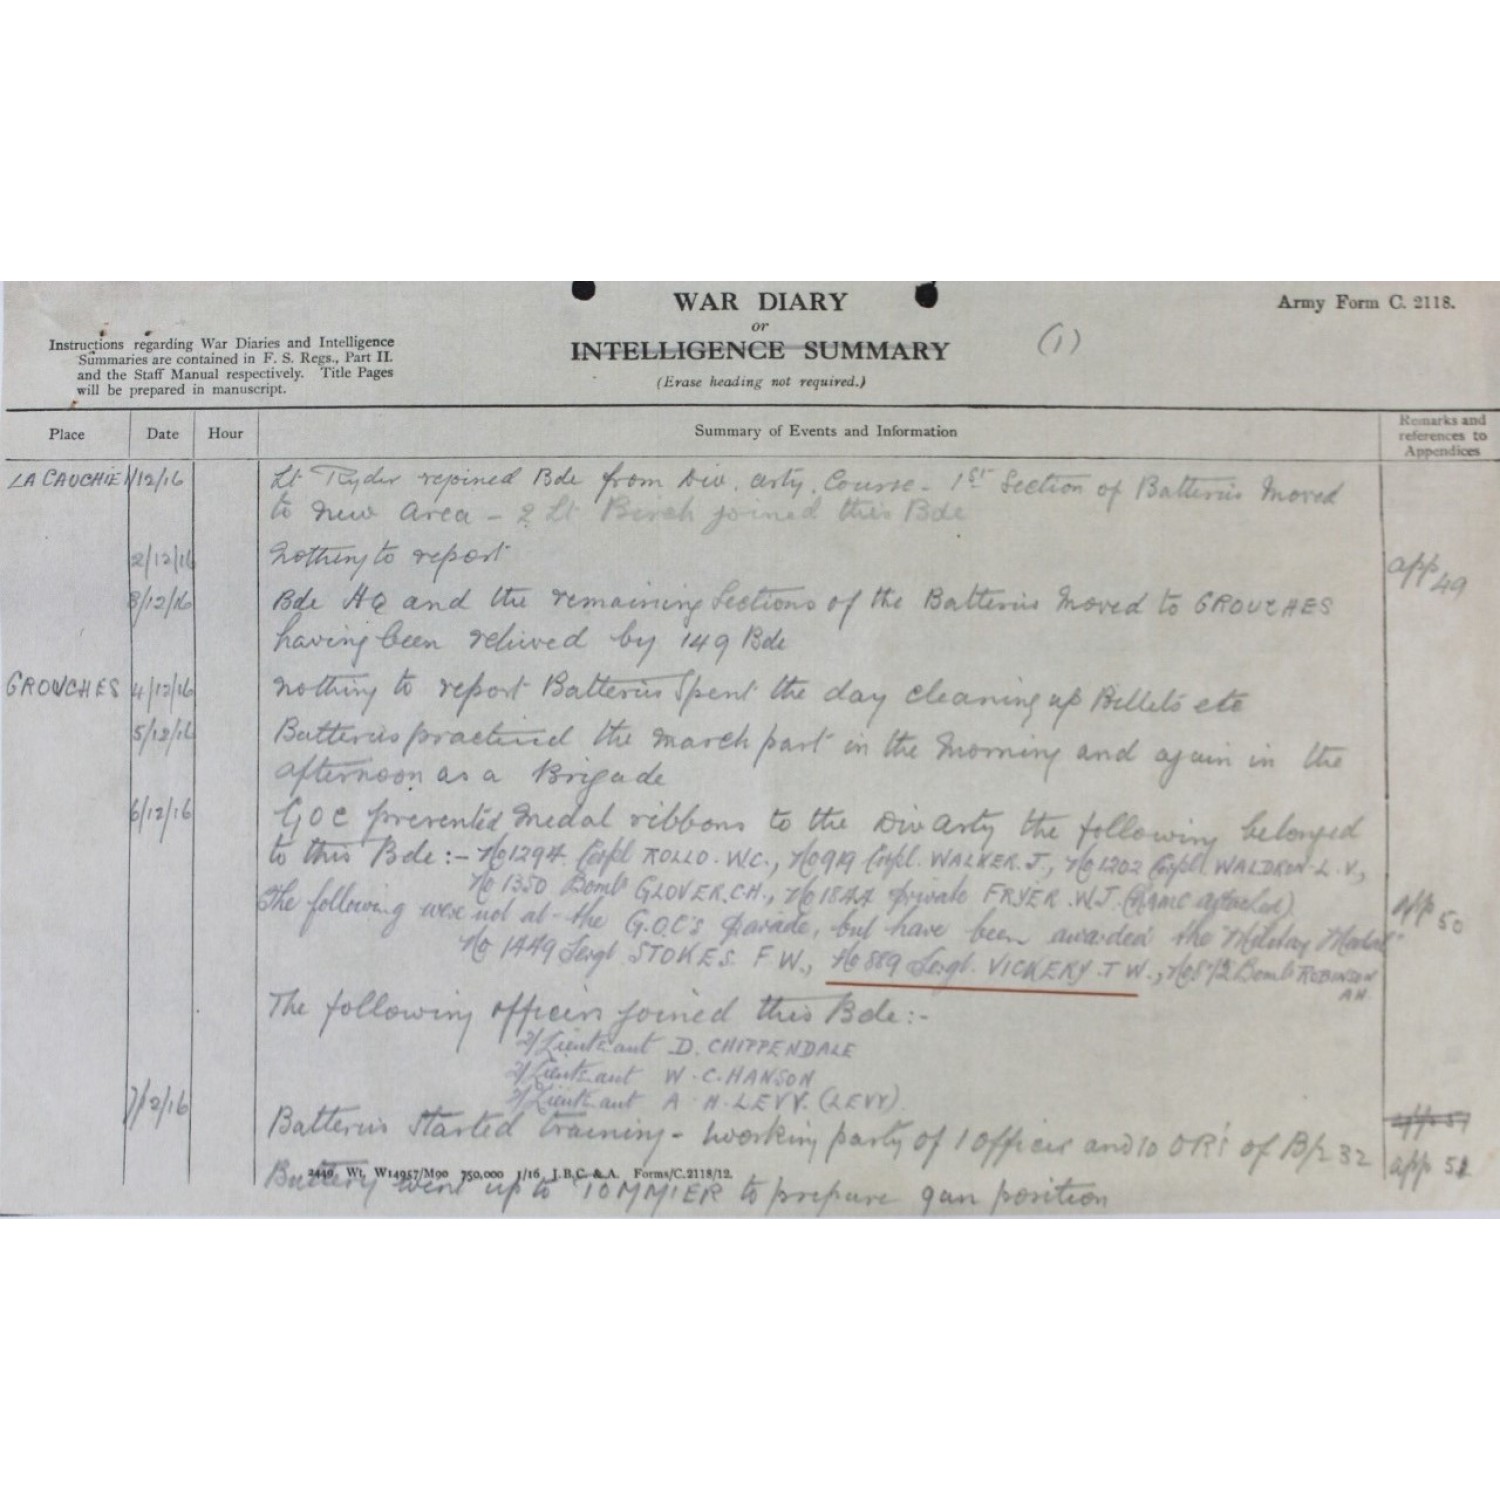 WAR DIARY
or
INTELLIGENCE SUMMARY
(Erase heading not required.)
Army Form C. 2118.
(1)
Instructions regarding War Diaries and Intelligence
Summaries are contained in F. S. Regs., Part II.
and the Staff Manual respectively. Title Pages
will be prepared in manuscript.
Place Date Hour Summary of Events and Information Remarks and references to Appendices
LA CAUCHIE 1/12/16 Lt Ryder rejoined Bde from Div. arty. Course - 1st Section of Batteries moved
to new Area - 2 Lt Birch joined this Bde
2/12/16 Nothing to report app 49
3/12/16 Bde HQ and the remaining Sections of the Batteries moved to GROUCHES
having been relieved by 149 Bde
GROUCHES 4/12/16 Nothing to report Batteries Spent the day cleaning up Billets etc
5/12/16 Batteries practised the March past in the Morning and again in the
afternoon as a Brigade
6/12/16 GOC presented Medal ribbons to the Div Arty the following belonged
to this Bde :- No 1294 Corpl ROLLO. W.C., No 919 Corpl. WALKER. J., No 1202 Corpl. WALDRON. L. V.,
No 1350 Bombr GLOVER. C.H., No 1844 Private FRYER. W.J. (RAMC attached)
The following were not at the G.O.C's Parade, but have been awarded the "Military Medal" app 50
No 1449 Sergt STOKES. F W., No 889 Sergt. VICKERY. T W., No 872 Bombr ROBINSON
A H.
The following officers joined this Bde :-
2/Lieutenant D. CHIPPENDALE
2/Lieutenant W. C. HANSON
2/Lieutenant A. H. LEVY. (LEVY)
7/12/16 Batteries Started training - working party of 1 Officer and 10 ORs of B/232 app 51
Battery went up to POMMIER to prepare gun position app 51
2449 Wt. W14957/M90 750,000 1/16 J.B.C. & A. Forms/C.2118/12.